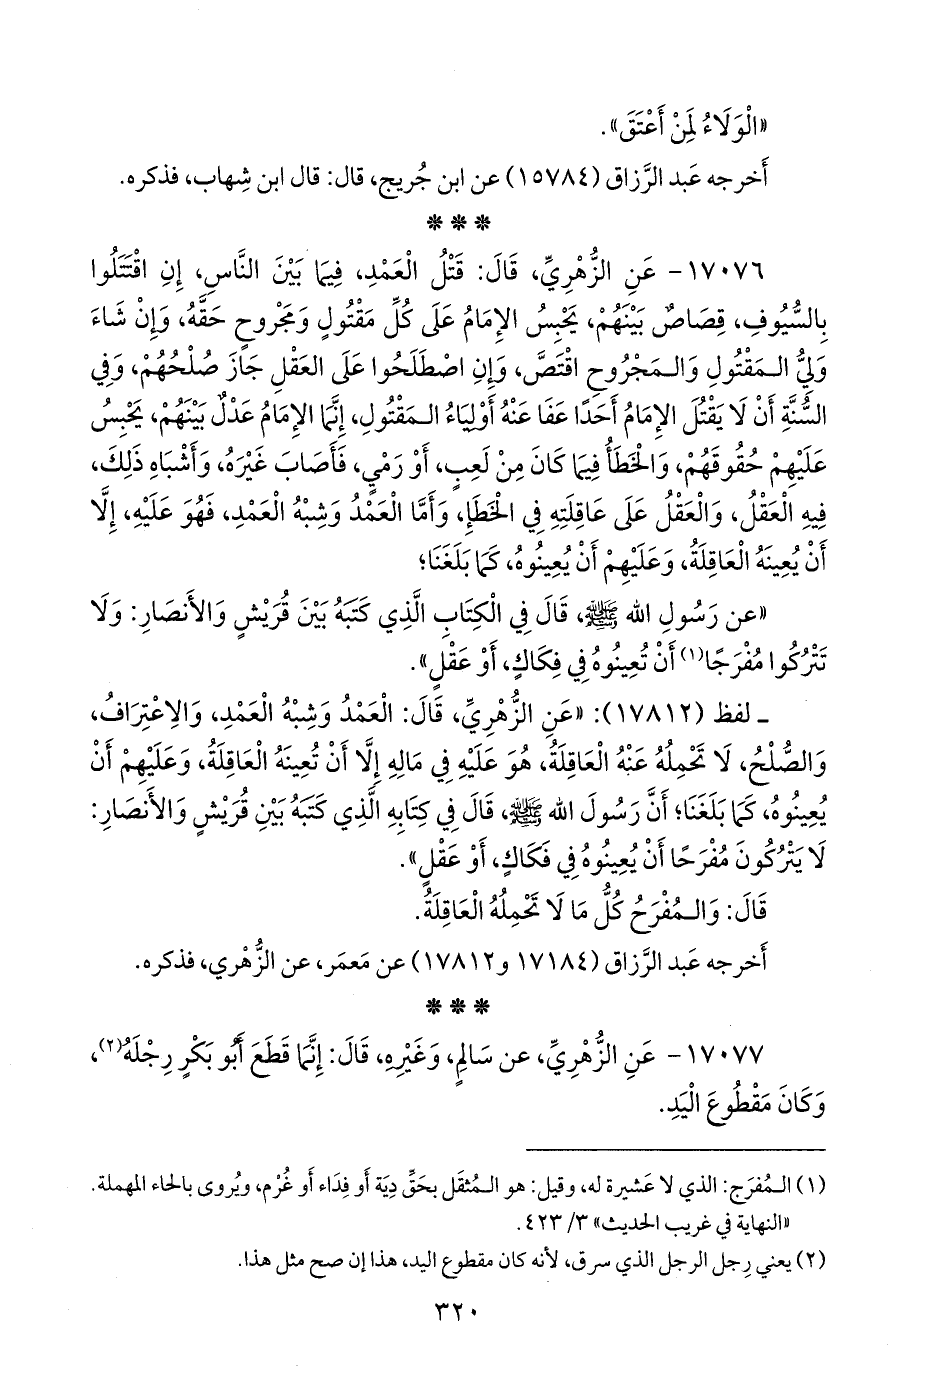 «الْوَلَاءُ لِمَنْ أَعْتَقَ».
أَخرجه عَبد الرَّزاق (١٥٧٨٤) عن ابن جُريج، قال: قال ابن شِهاب، فذكره.
* * *
١٧٠٧٦- عَنِ الزُّهْرِيِّ، قَالَ: قَتْلُ الْعَمْدِ، فِيمَا بَيْنَ النَّاسِ، إِنِ اقْتَتَلُوا
بِالسُّيُوفِ، قِصَاصٌ بَيْنَهُمْ، يَحْبِسُ الإِمَامُ عَلَى كُلِّ مَقْتُولٍ وَمَجْرُوحٍ حَقَّهُ، وَإِنْ شَاءَ
وَلِيُّ الْمَقْتُولِ وَالْمَجْرُوحِ اقْتَصَّ، وَإِنِ اصْطَلَحُوا عَلَى العَقْلِ جَازَ صُلْحُهُمْ، وَفِي
السُّنَّةِ أَنْ لَا يَقْتُلَ الإِمَامُ أَحَدًا عَفَا عَنْهُ أَوْلِيَاءُ الْمَقْتُولِ، إِنَّمَا الإِمَامُ عَدْلٌ بَيْنَهُمْ، يَحْبِسُ
عَلَيْهِمْ حُقُوقَهُمْ، وَالْخَطَأُ فِيمَا كَانَ مِنْ لَعِبٍ، أَوْ رَمْيٍ، فَأَصَابَ غَيْرَهُ، وَأَشْبَاهِ ذَلِكَ،
فِيهِ الْعَقْلُ، وَالْعَقْلُ عَلَى عَاقِلَتِهِ فِي الْخَطَإِ، وَأَمَّا الْعَمْدُ وَشِبْهُ الْعَمْدِ، فَهُوَ عَلَيْهِ، إِلَّا
أَنْ يُعِينَهُ الْعَاقِلَةُ، وَعَلَيْهِمْ أَنْ يُعِينُوهُ، كَمَا بَلَغَنَا؛
«عن رَسُولِ الله ﷺ، قَالَ فِي الْكِتَابِ الَّذِي كَتَبَهُ بَيْنَ قُرَيْشٍ وَالأَنصَارِ: وَلَا
تَتْرُكُوا مُفْرَجًا(١) أَنْ تُعِينُوهُ فِي فِكَاكٍ، أَوْ عَقْلٍ».
ـ لفظ (١٧٨١٢): «عَنِ الزُّهْرِيِّ، قَالَ: الْعَمْدُ وَشِبْهُ الْعَمْدِ، وَالِاعْتِرَافُ،
وَالصُّلْحُ، لَا تَحْمِلُهُ عَنْهُ الْعَاقِلَةُ، هُوَ عَلَيْهِ فِي مَالِهِ إِلَّا أَنْ تُعِينَهُ الْعَاقِلَةُ، وَعَلَيْهِمْ أَنْ
يُعِينُوهُ، كَمَا بَلَغَنَا؛ أَنَّ رَسُولَ الله ﷺ، قَالَ فِي كِتَابِهِ الَّذِي كَتَبَهُ بَيْنِ قُرَيْشٍ وَالأَنصَارِ:
لَا يَتْرُكُونَ مُفْرَحًا أَنْ يُعِينُوهُ فِي فَكَاكٍ، أَوْ عَقْلٍ».
قَالَ: وَالْمُفْرَحُ كُلُّ مَا لَا تَحْمِلُهُ الْعَاقِلَةُ.
أَخرجه عَبد الرَّزاق (١٧١٨٤ و١٧٨١٢) عن مَعمَر، عن الزُّهْري، فذكره.
* * *
١٧٠٧٧- عَنِ الزُّهْرِيِّ، عن سَالِمٍ، وَغَيْرِهِ، قَالَ: إِنَّمَا قَطَعَ أَبُو بَكْرٍ رِجْلَهُ(٢)،
وَكَانَ مَقْطُوعَ الْيَدِ.
(١) الْمُفرَج: الذي لا عَشيرة له، وقيل: هو الْمُثقَل بحَقِّ دِيَة أَو فِدَاء أَو غُرْم، ويُروى بالحاء المهملة.
«النهاية في غريب الحديث» ٣/ ٤٢٣.
(٢) يعني رِجل الرجل الذي سرق، لأنه كان مقطوع اليد، هذا إن صح مثل هذا.
٣٢٠